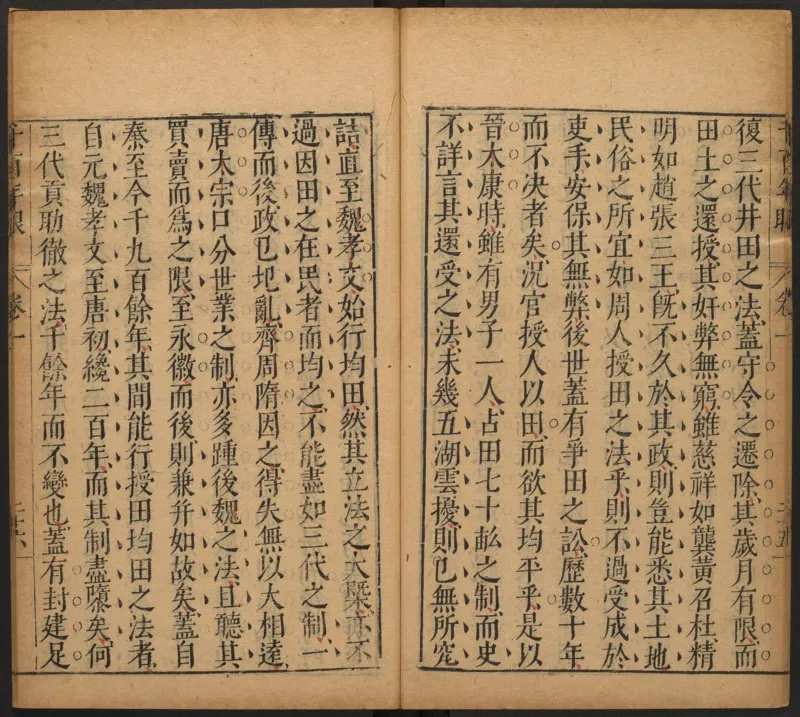 復三代井田之法蓋守令之遷除其歲月有限而
田土之還授其奸弊無窮雖慈祥如龔黃召杜精
明如趙張三王旣不久於其政則豈能悉其土地
民俗之所宜如周人授田之法乎則不過受成於
吏手安保其無弊後世蓋有爭田之訟歷數十年
而不決者矣況官授人以田而欲其均平乎是以
晉太康時雖有男子一人占田七十畝之制而史
不詳言其還受之法未幾五湖雲擾則已無所究
詰直至魏孝文始行均田然其立法之大槩亦不
過因田之在民者而均之不能盡如三代之制一
傳而後政已圯亂齊周隋因之得失無以大相遠
唐太宗口分世業之制亦多踵後魏之法且聽其
買賣而爲之限至永徽而後則兼并如故矣蓋自
秦至今千九百餘年其間能行授田均田之法者
自元魏孝文至唐初纔二百年而其制盡隳矣何
三代貢助徹之法千餘年而不變也蓋有封建足
卷一